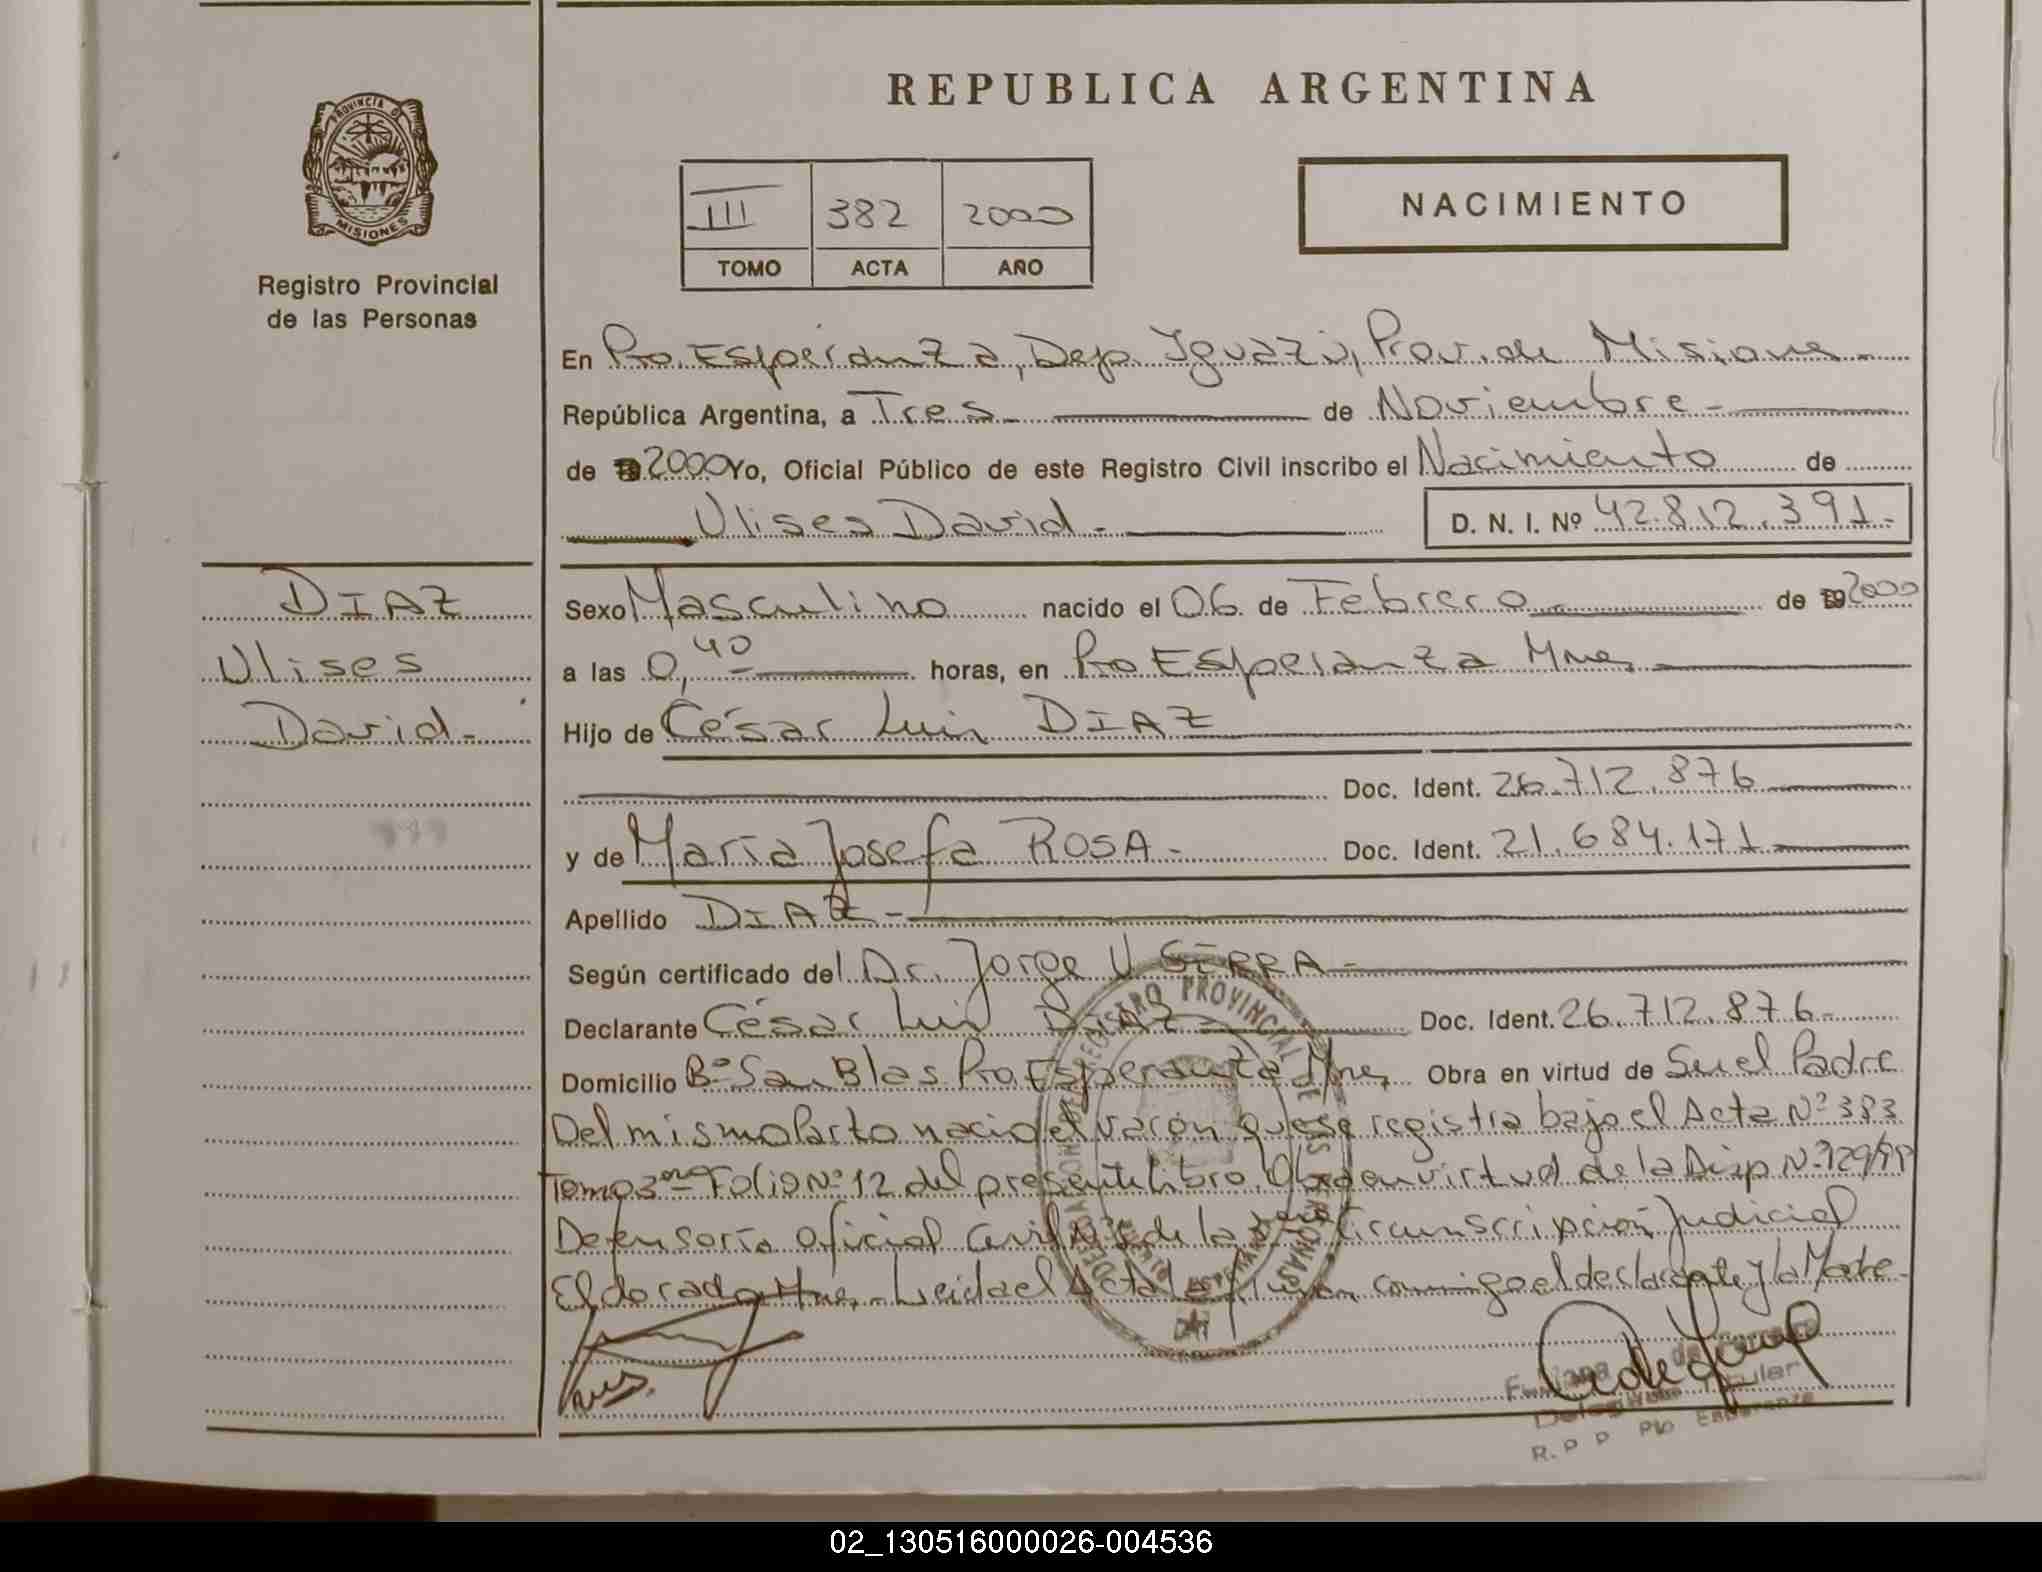 REPUBLICA ARGENTINA
PROVINCIA D
MISIONES
Registro Provincial
de las Personas
III 382 2000
TOMO ACTA AÑO
NACIMIENTO
En Pto. Esperanza, Dep. Iguazú, Prov. de Misiones
República Argentina, a Tres de Noviembre
de 2000 Yo, Oficial Público de este Registro Civil inscribo el Nacimiento de
Ulises David D. N. I. Nº 42.812.391
DIAZ
Ulises
David
Sexo Masculino nacido el 06 de Febrero de 2000
a las 0,40 horas, en Pto Esperanza Mnes
Hijo de César Luis DIAZ
Doc. Ident. 26.712.876
y de María Josefa ROSA Doc. Ident. 21.684.171
Apellido DIAZ
Según certificado del Dr. Jorge U SERRA
Declarante César Luis DIAZ Doc. Ident. 26.712.876
Domicilio Bº San Blas Pto. Esperanza Mnes Obra en virtud de Ser el Padre
Del mismo Parto nació el varón que se registra bajo el Acta Nº 383
Tomo 3 Folio Nº 12 del presente Libro. Obra en virtud de la Disp Nº
Defensoría Oficial Civil de la Circunscripción Judicial
Eldorado Mnes. Leida el Acta conmigo el declarante y la Madre
REGISTRO PROVINCIAL DE LAS PERSONAS
R. P. P Pto Esperanza
02_130516000026-004536